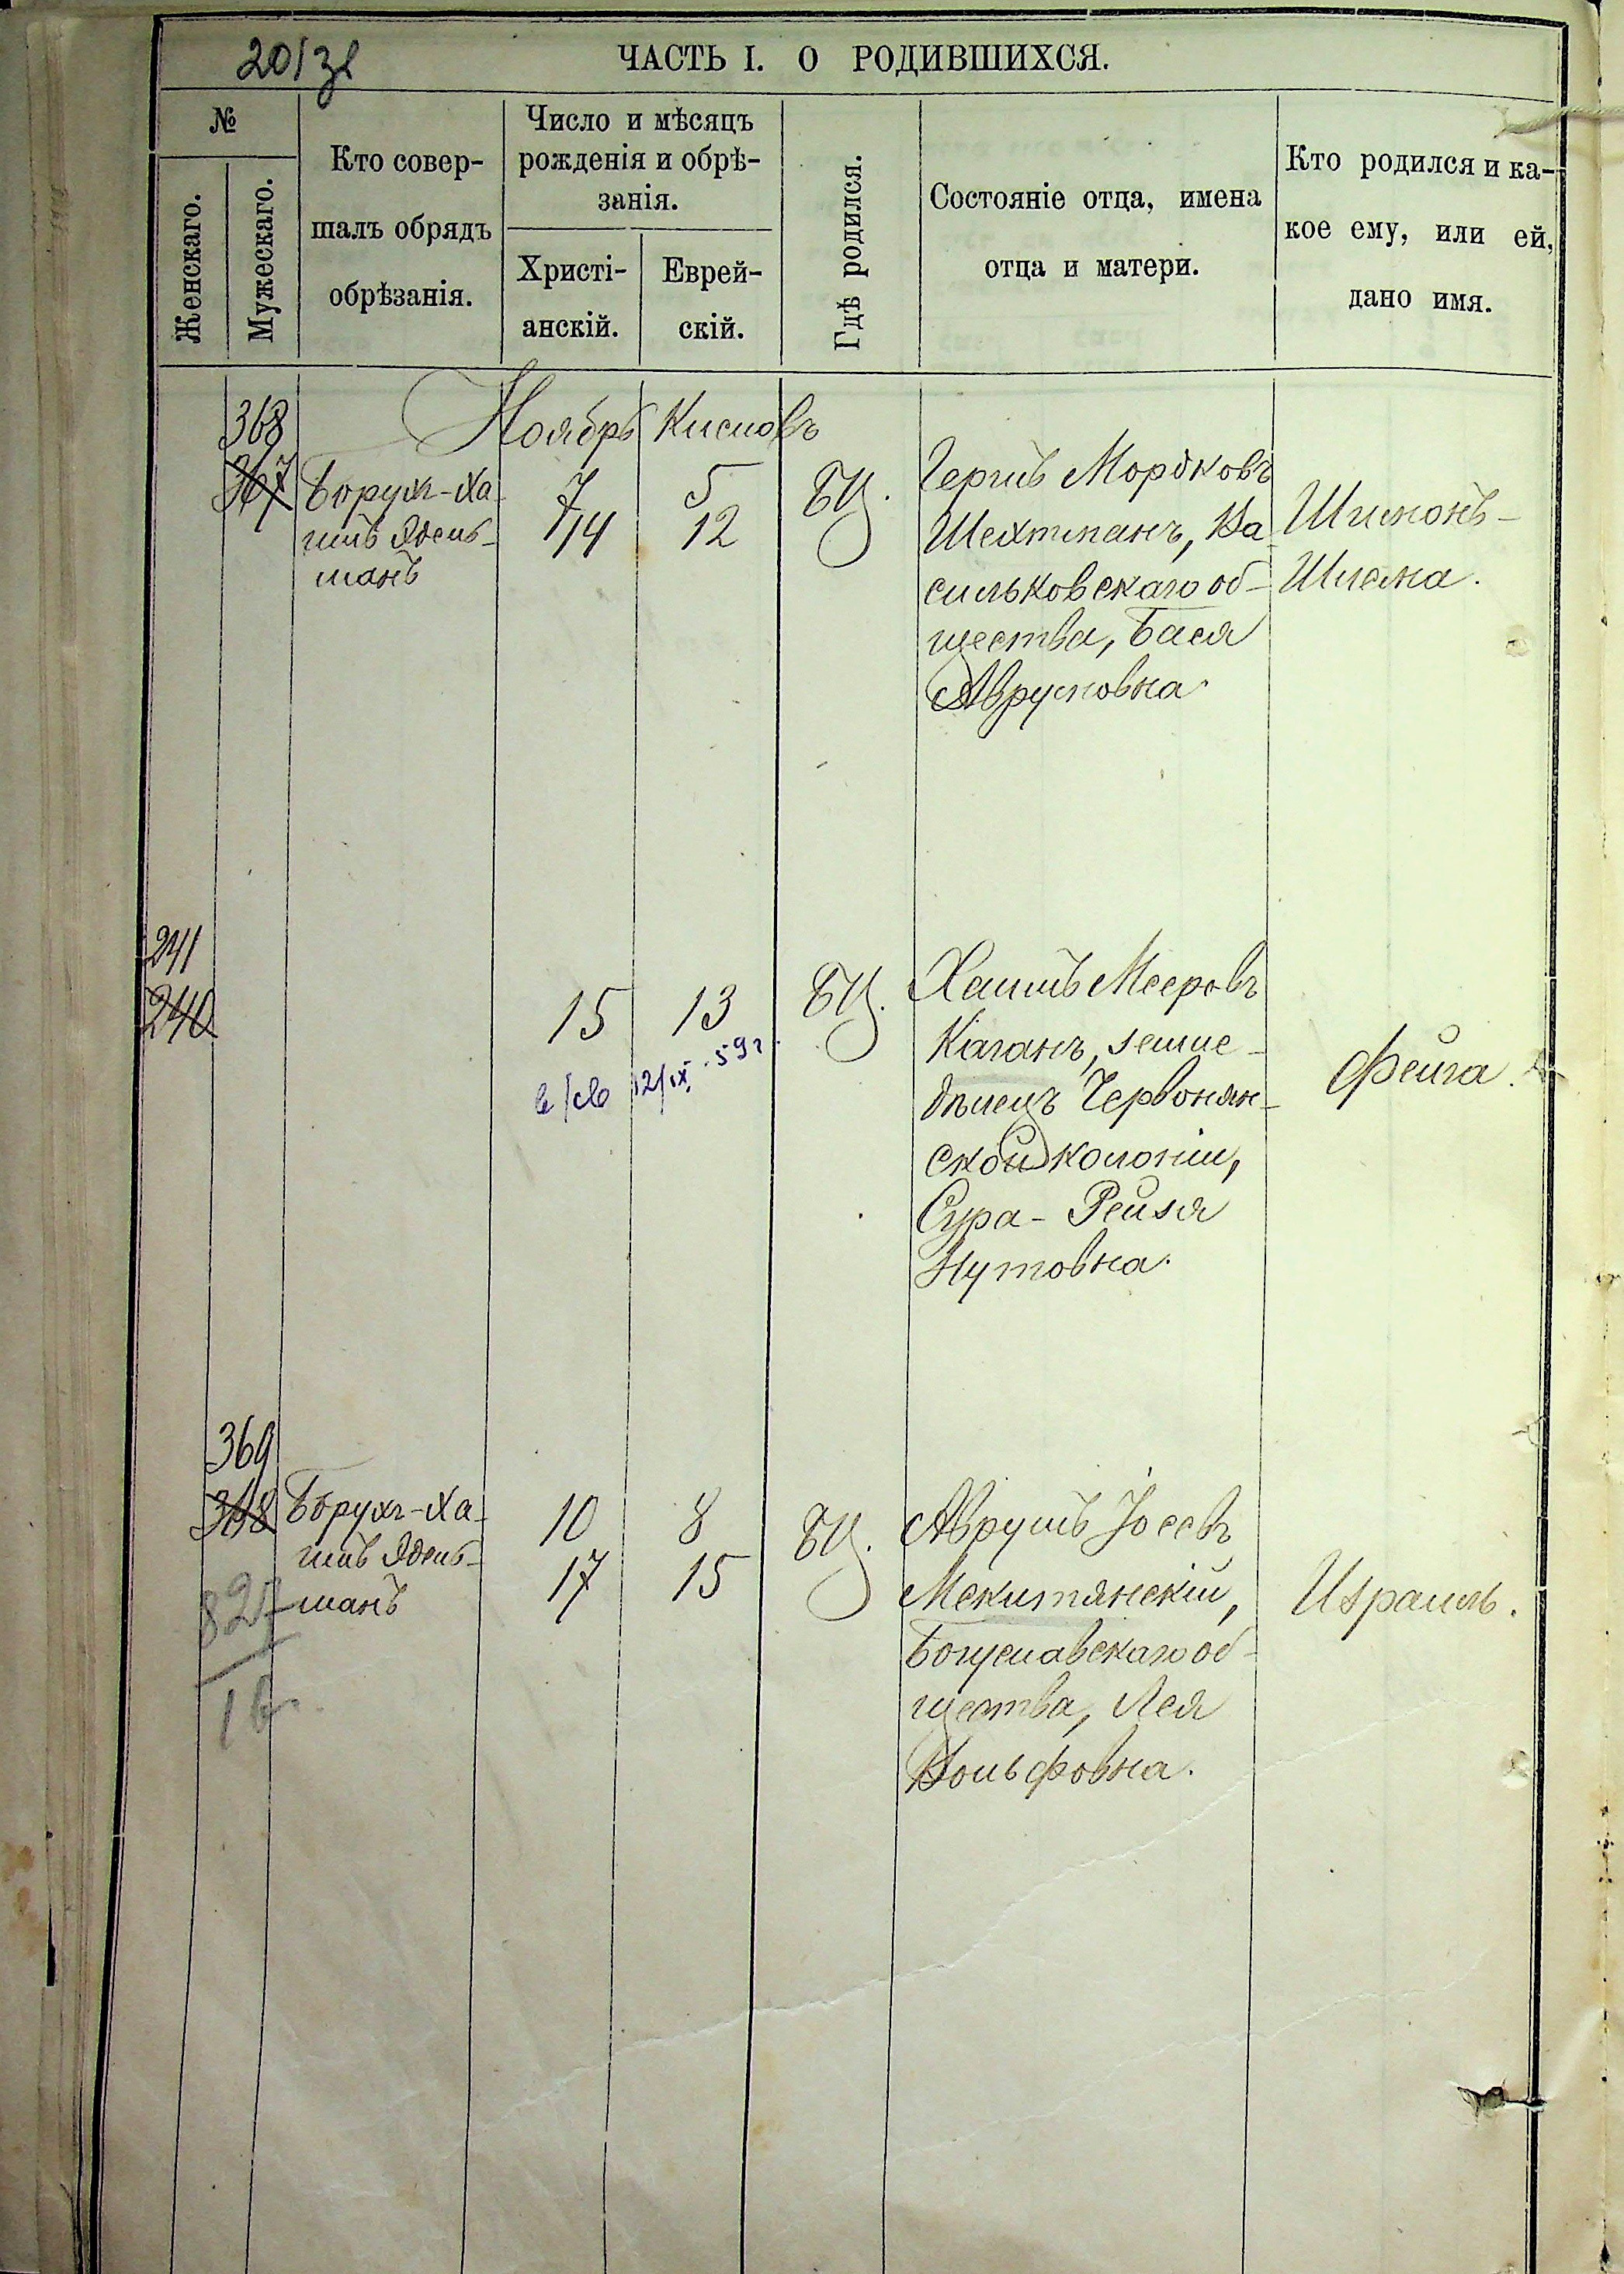 201 зв
ЧАСТЬ I. О РОДИВШИХСЯ.
№
Женскаго.
Мужескаго.
Кто совер-
шалъ обрядъ
обрѣзанія.
Число и мѣсяцъ
рожденія и обрѣ-
занія.
Христі-
анскій.
Еврей-
скій.
Гдѣ родился.
Состояніе отца, имена
отца и матери.
Кто родился и ка-
кое ему, или ей,
дано имя.
Ноябрь Кислевъ
368
367
Борухъ-Ха-
имъ Эдель-
манъ
7
14
5
12
БЦ.
Гершъ Мордковъ
Шехтманъ, Ва-
сильковскаго об-
щества, Бася
Аврумовна.
Шимонъ-
Шлема.
241
240
15
13
в/св 12/IX-59г.
БЦ.
Хаимъ Мееровъ
Каганъ, земле-
дѣлецъ Червонян-
ской колоніи,
Сура-Рейзя
Нутовна.
Фейга.
369
368
Борухъ-Ха-
имъ Эдель-
манъ
10
17
8
15
БЦ.
Аврумъ Іосевъ
Мекитянскій,
Богуславскаго об-
щества, Лея
Вольфовна.
Израиль.